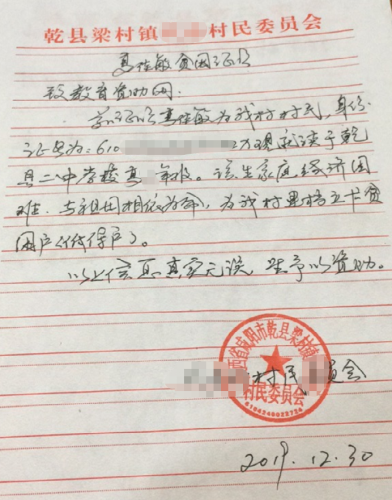 乾县梁村镇 村民委员会
贫困证明
致教育资助网：
兹证明 为我村村民，身份
证号为：610 现就读于乾
县二中学校高 年级。该生家庭经济困
难，与祖母相依为命，为我村建档立卡贫
困户（低保户）。
以上信息真实无误，望予以资助。
陕西省咸阳市乾县梁村镇
村民委员会
村民 员会
2019.12.30